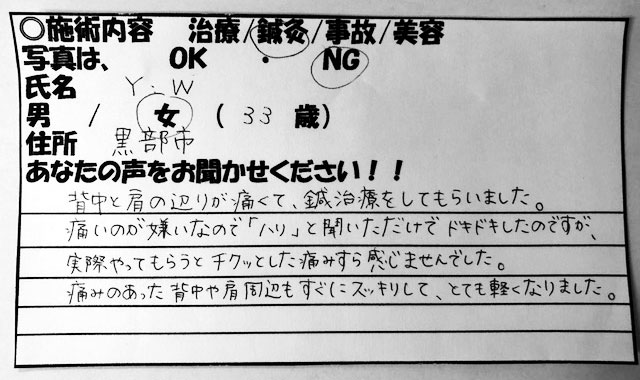 ○施術内容 治療/鍼灸/事故/美容
写真は、 OK ・ NG
氏名 Y.W
男 / 女 ( 33 歳)
住所 黒部市
あなたの声をお聞かせください！！
背中と肩の辺りが痛くて、鍼治療をしてもらいました。
痛いのが嫌いなので「ハリ」と聞いただけでドキドキしたのですが、
実際やってもらうとチクッとした痛みすら感じませんでした。
痛みのあった背中や肩周辺もすぐにスッキリして、とても軽くなりました。